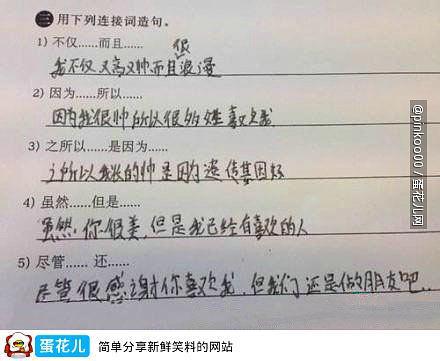 三 用下列连接词造句。
1) 不仅……而且……
很
我不仅又高又帅而且浪漫
2) 因为……所以……
因为我很帅所以很多姓喜欢我
3) 之所以……是因为……
之所以我长的帅是因为遗传基因好
4) 虽然……但是……
虽然你很美,但是我已经有喜欢的人
5) 尽管…… 还……
尽管很感谢你喜欢我,但我们还是做朋友吧..
@pinkoooo / 蛋花儿网
蛋花儿 简单分享新鲜笑料的网站